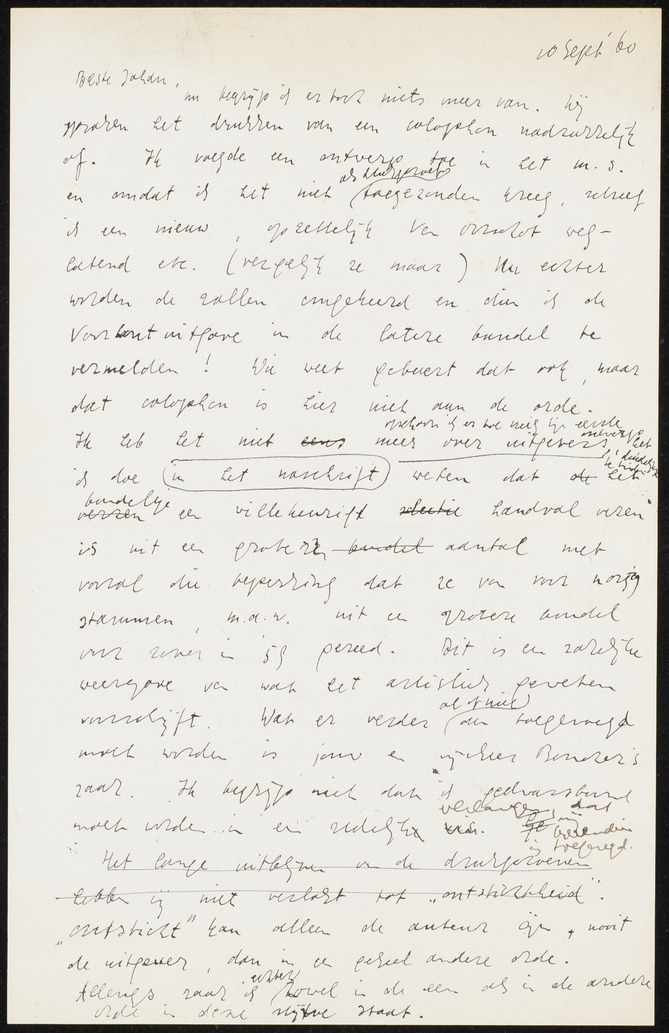 10 Sept '60
Beste Johan,
nu begrijp ik er toch niets meer van. Wij
spraken het drukken van een colophon nadrukkelijk
af. Ik voegde een ontwerp toe in het m.s.
als drukproef
en omdat ik het niet toegezonden kreeg, schreef
ik een nieuw, opzettelijk Van Oorschot weg-
latend etc. (vergelijk ze maar) Nu echter
worden de rollen omgekeerd en dien ik de
uitgave in de latere bundel te
vermelden! Wie weet gebeurt dat ook, maar
dat colophon is hier niet aan de orde.
ofschoon ik er toe neig mijn eerste
Ik heb het niet eens meer over uitgevers ontwerp
ik doe (in het naschrift) weten dat de het
bundeltje
verzen een willekeurige selectie handvol verzen
is uit een groter bundel aantal met
vooral die beperking dat ze van voor
stammen, m.a.w. uit een grotere bundel
voor zover in 59 gereed. Dit is een zakelijke
weergave van wat het artistiek geweten
voorschrijft. Wat er verder al of niet aan toegevoegd
moet worden is jouw en mijnheer
zaak. Ik begrijp niet dat ik gedwarsboomd
moet worden in een redelijk verlangen, dat
toegezegd.
Het lange uitblijven van de drukproeven
hebben mij niet verlokt tot „ontstichtheid”.
„ontsticht” kan alleen de auteur zijn, nooit
de uitgever, dan in een geheel andere orde.
echter
Allengs raak ik zowel in de een als in de andere
orde in deze staat.